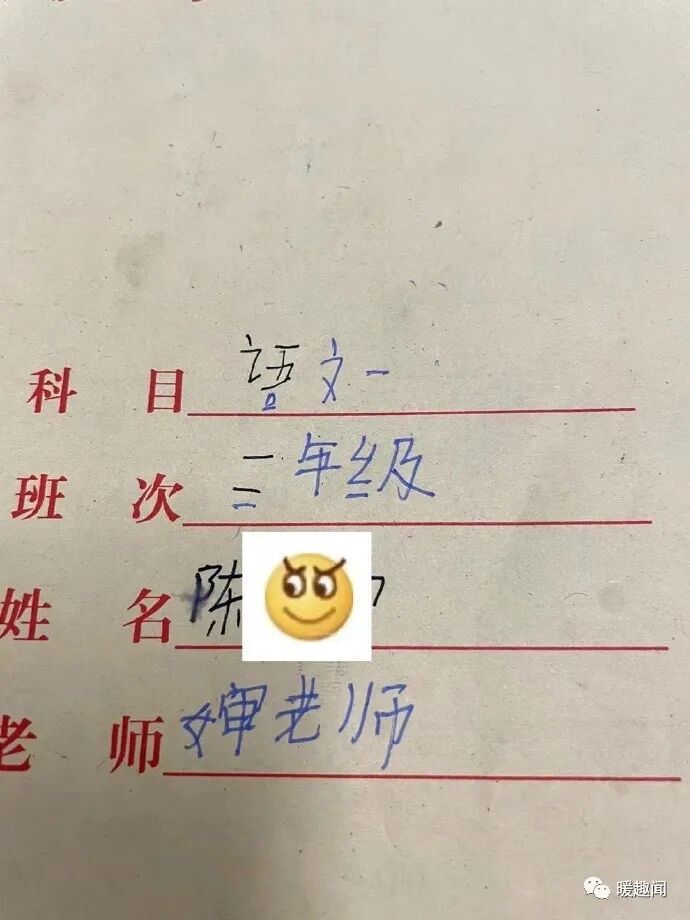 科目 语文一
班次 三年级
姓名 陈
老师 婶老师
暖趣闻